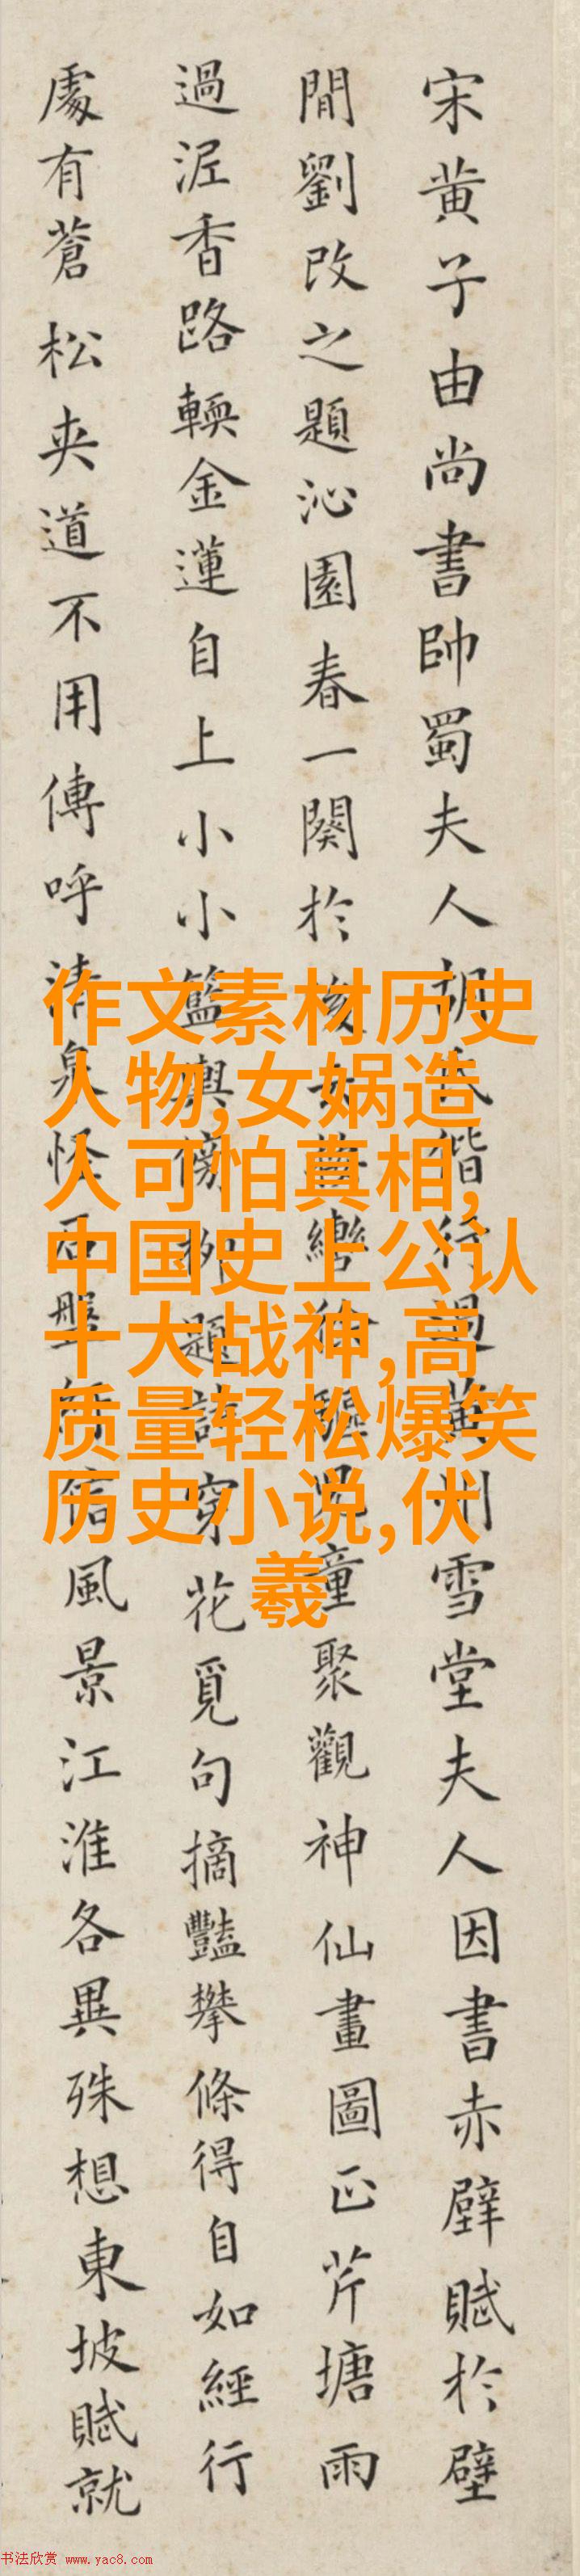 宋黄子由尚書帥蜀夫人胡氏偕行過黄州雪堂夫人因書赤壁賦於壁
間劉改之題沁園春一闋於後轡徐驅兒童聚觀神仙畫圖正芹塘雨
過泥香路輭金蓮自上小小籃輿傍柳題詩穿花覓句摘豔攀條得自如經行
處有蒼松夾道不用傳呼清泉怪石盤信風景江淮各異殊想東坡賦就
作文素材历史
人物,女娲造
人可怕真相,
中国史上公认
十大战神,高
质量轻松爆笑
历史小说,伏
羲
书法欣赏 www.yac8.com